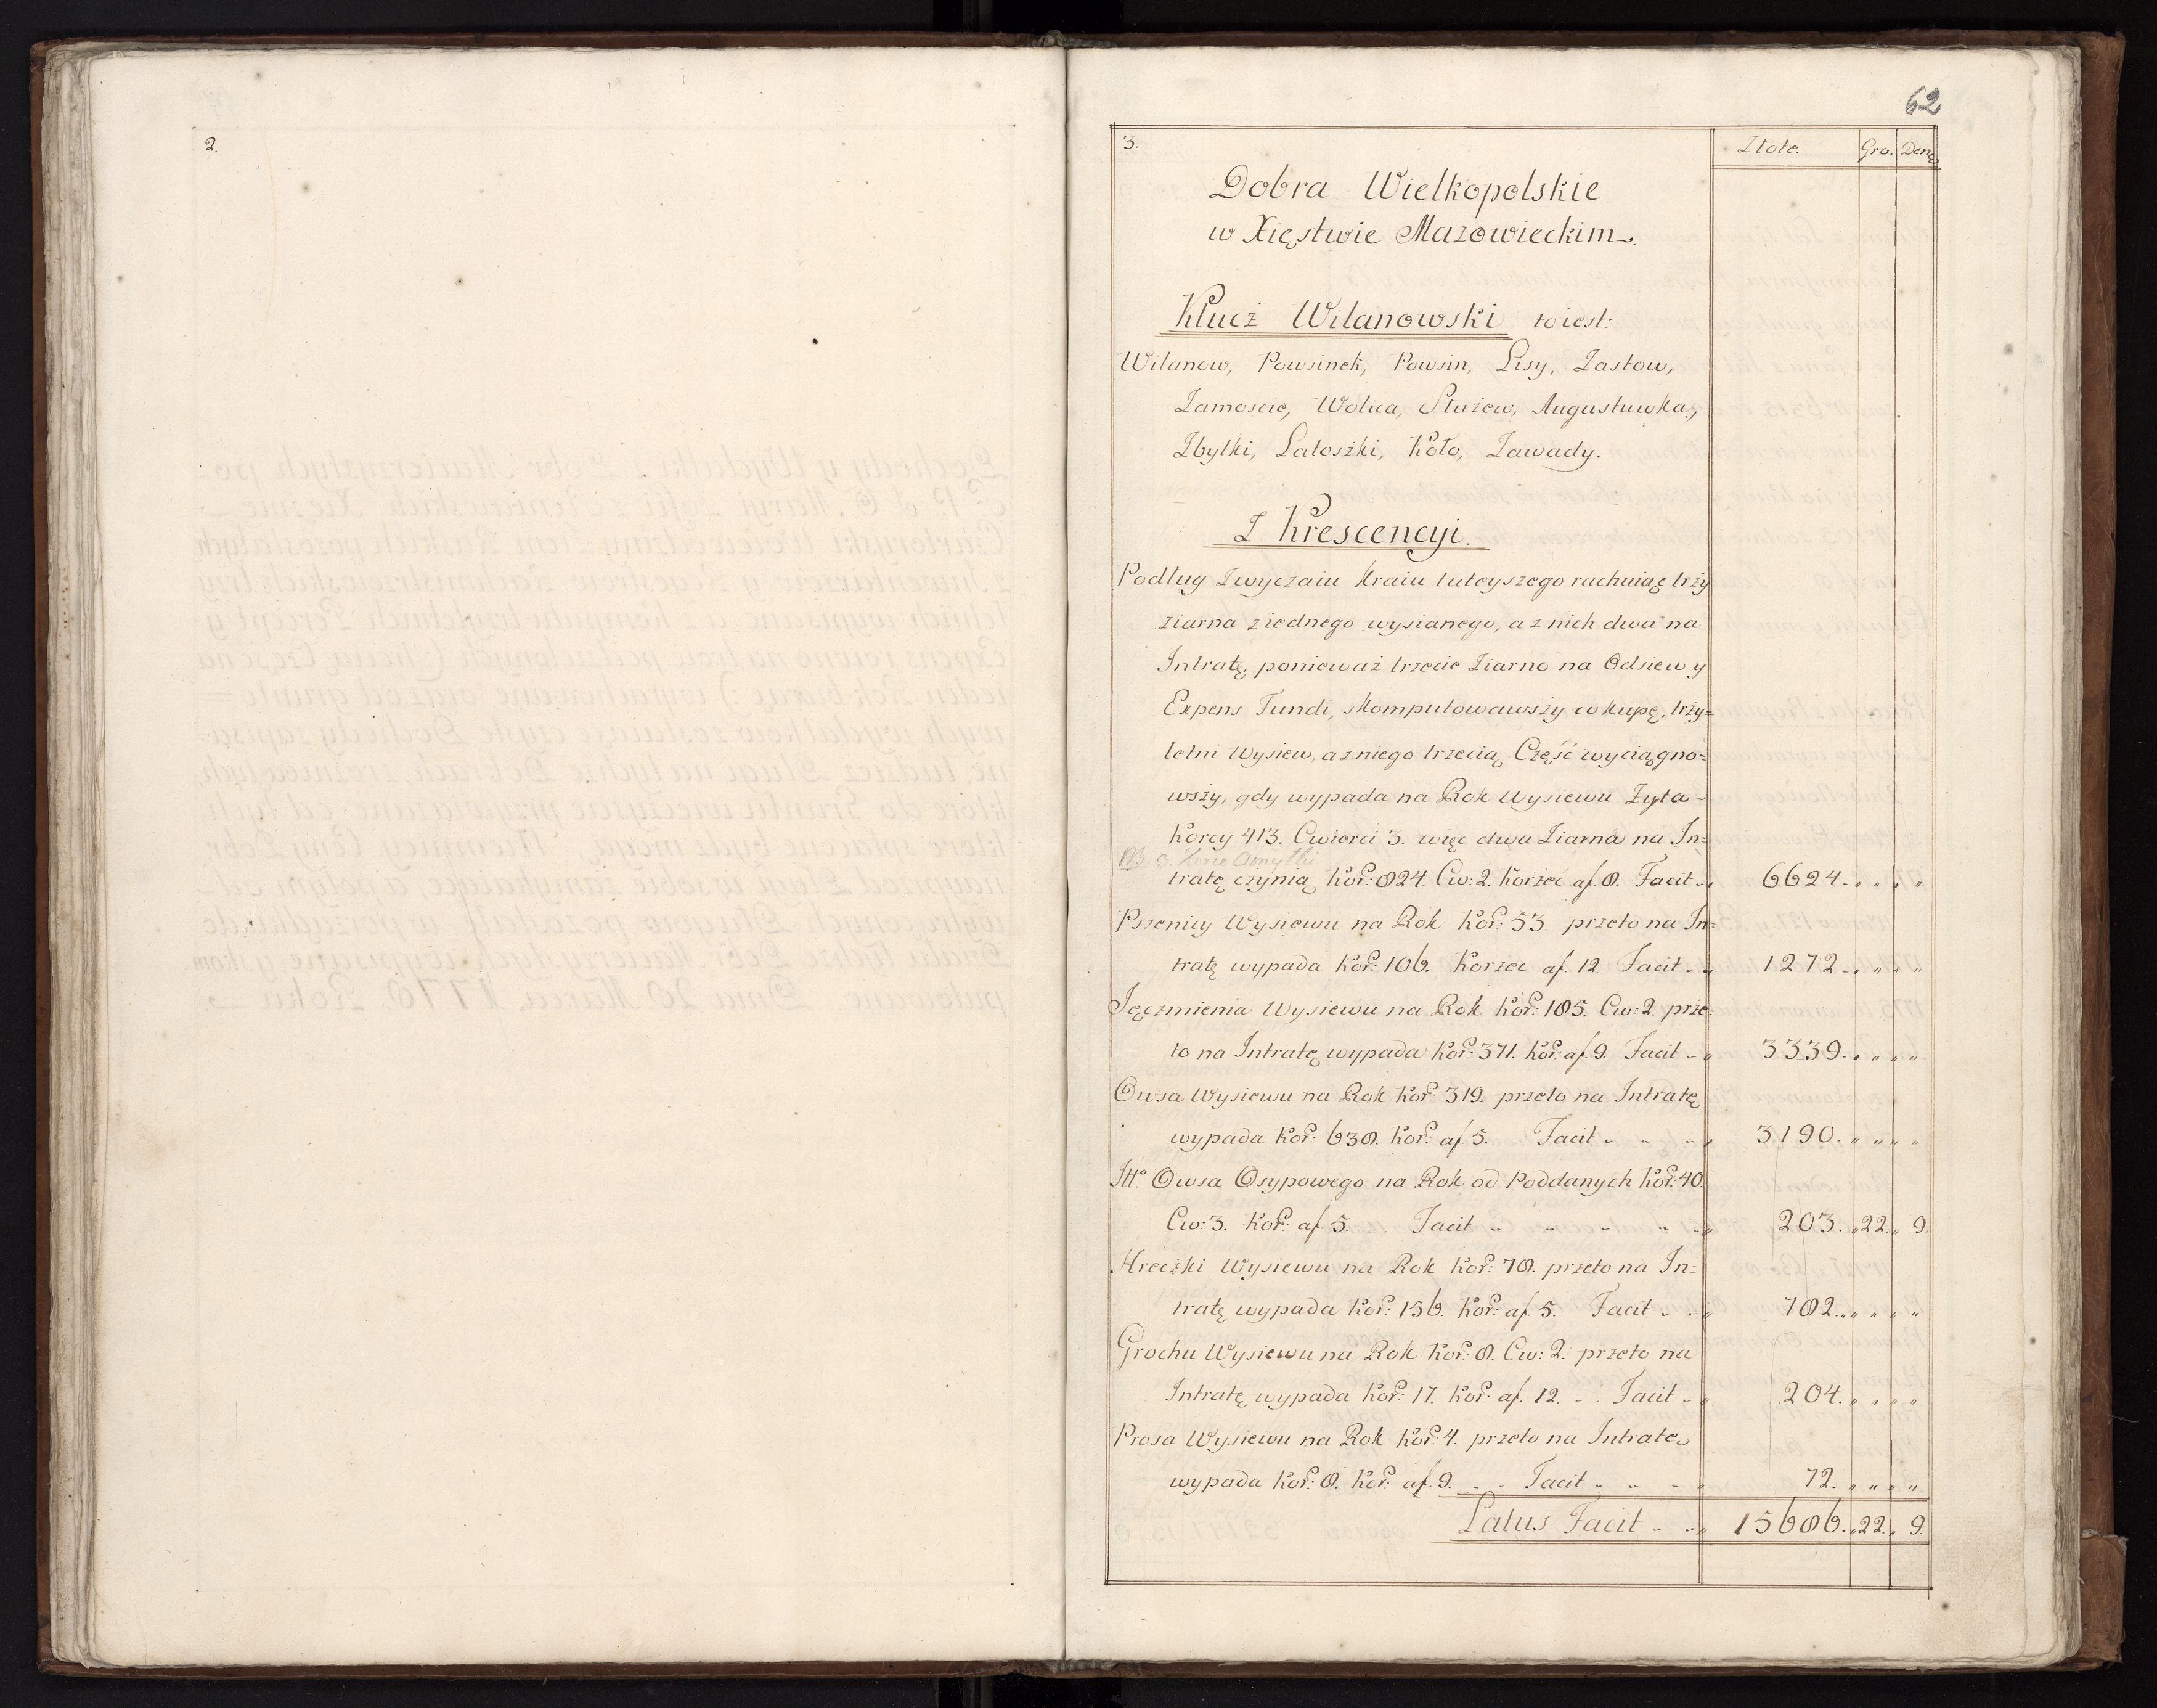 2.
62
3.
Złote. Gro. Den:
Dobra Wielkopolskie
w Xięstwie Mazowieckim
Klucż Wilanowski to iest:
Wilanow, Powsinek, Powsin, Lisy, Zastow,
Zamoscie, Wolica, Służew, Augustuwka,
Zbytki, Latoszki, Koło, Zawady.
Z Krescencyi.
Podług Zwyczaiu Kraiu tuteyszego rachuiąc trży
ziarna z iednego wysianego, a z nich dwa na
Intratę, ponieważ trzecie Ziarno na Odsiew y
Expens Fundi, skomputowawszy w kupę, trży=
letni Wysiew, a z niego trzecią Część wyciągno=
wszy, gdy wypada na Rok Wysiewu Zyta
Korcy 413. Cwierci 3. więc dwa Ziarna na In=
NB. 3. Korce Omyłki
tratę czynią Kor: 824. Cw: 2. Korzec af. 8. Facit 6624.
Pszenicy Wysiewu na Rok Kor: 53. przeto na In=
tratę wypada Kor: 106. Korzec af. 12. Facit 1272.
Jęczmienia Wysiewu na Rok Kor: 185. Cw: 2. prze=
to na Intratę wypada Kor: 371. Kor: af. 9. Facit 3339.
Owsa Wysiewu na Rok Kor: 319. przeto na Intratę
wypada Kor: 638. Kor: af. 5. Facit 3190.
Itt.o Owsa Osypowego na Rok od Poddanych Kor: 40.
Cw: 3. Kor: af. 5. Facit 203. 22. 9.
Hreczki Wysiewu na Rok Kor: 78. przeto na In=
tratę wypada Kor: 156. Kor: af. 5. Facit 782.
Grochu Wysiewu na Rok Kor: 8. Cw: 2. przeto na
Intratę wypada Kor: 17. Kor: af. 12. Facit 204.
Prosa Wysiewu na Rok Kor: 4. przeto na Intratę
wypada Kor: 8. Kor: af. 9. Facit 72.
Latus Facit 15686. 22. 9.